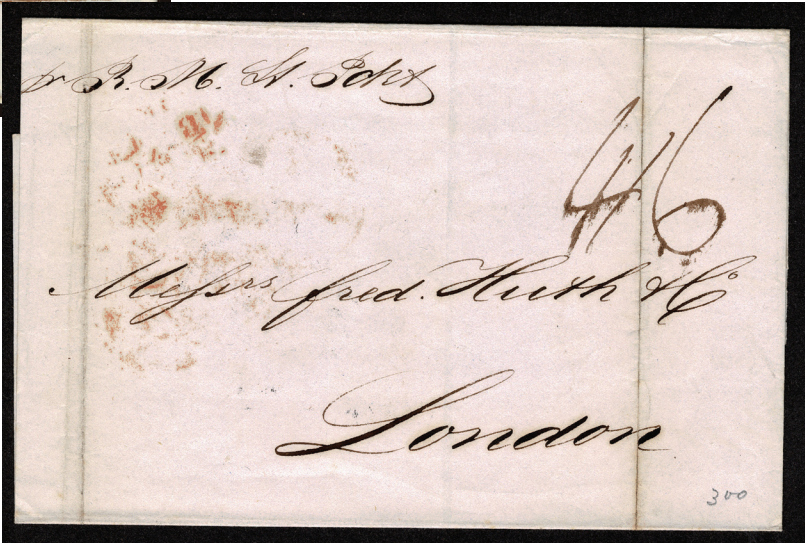 pr R. M. St. Pckt
4/6
Messrs. fred. Huth & Co
London
300